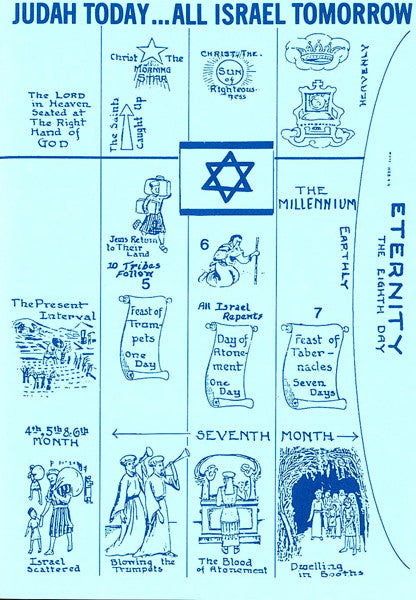 JUDAH TODAY...ALL ISRAEL TOMORROW
The LORD
in Heaven
Seated at
The Right
Hand of
GOD
Christ The
MORNING
STAR
The Saints
Caught Up
CHRIST THE
Sun
of
Righteous-
ness
HEAVENLY
THE
MILLENNIUM
EARTHLY
ETERNITY
THE EIGHTH DAY
Jews Return
to Their
Land
10 Tribes
Follow
5
6
All Israel
Repents
7
The Present
Interval
Feast of
Trum-
pets
One
Day
Day of
Atone-
ment
One
Day
Feast of
Taber-
nacles
Seven
Days
4th, 5th & 6th
MONTH
SEVENTH MONTH
Israel
Scattered
Blowing the
Trumpets
The Blood
of Atonement
Dwelling
in Booths